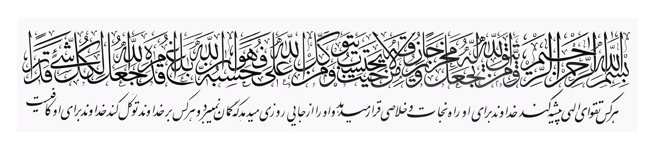 بسم الله الرحمن الرحيم ومن يتق الله يجعل له مخرجا ويرزقه من حيث لا يحتسب ومن يتوكل على الله فهو حسبه ان الله بالغ امره قد جعل الله لكل شئ قدرا
هر کس تقوای الهی پیشه کند خداوند برای او راه نجات و خلاصی قرار میدهد و او را از جایی روزی میدهد که گمان نمیبرد و هر کس بر خداوند توکل کند خداوند برای او کافیست